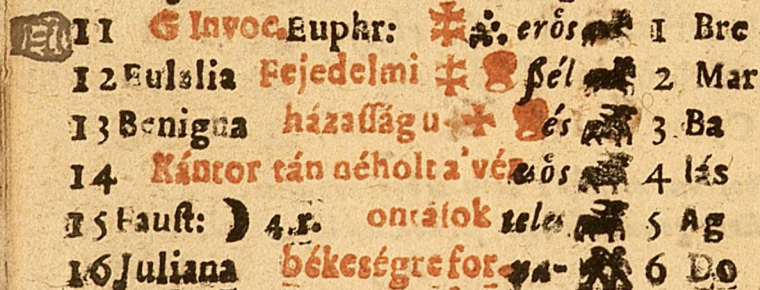 11 G Invoc. Euphr: erős 1 Bre
12 Eulalia Fejedelmi ſzél 2 Mar
13 Benigna házaſſágu és 3 Ba
14 Kántor tán néholt a' vér esős 4 lás
15 Fauſt: ☽ 4.r. ontátok teles 5 Ag
16 Juliana békeségre for- 6 Do